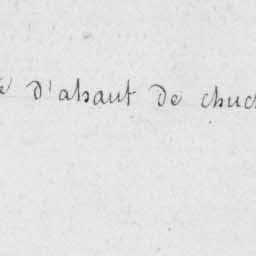 d'ahaut de chuc